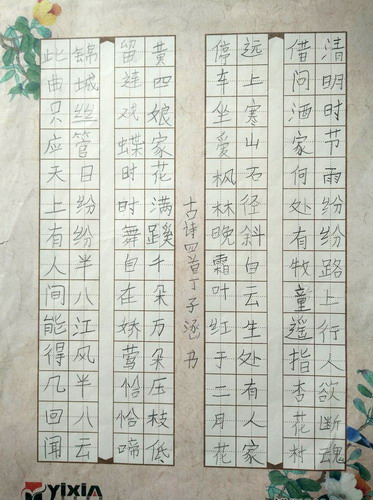 清明时节雨纷纷路上行人欲断魂
借问酒家何处有牧童遥指杏花村
远上寒山石径斜白云生处有人家
停车坐爱枫林晚霜叶红于二月花
古诗四首丁子涵书
黄四娘家花满蹊千朵万朵压枝低
留连戏蝶时时舞自在娇莺恰恰啼
锦城丝管日纷纷半入江风半入云
此曲只应天上有人间能得几回闻